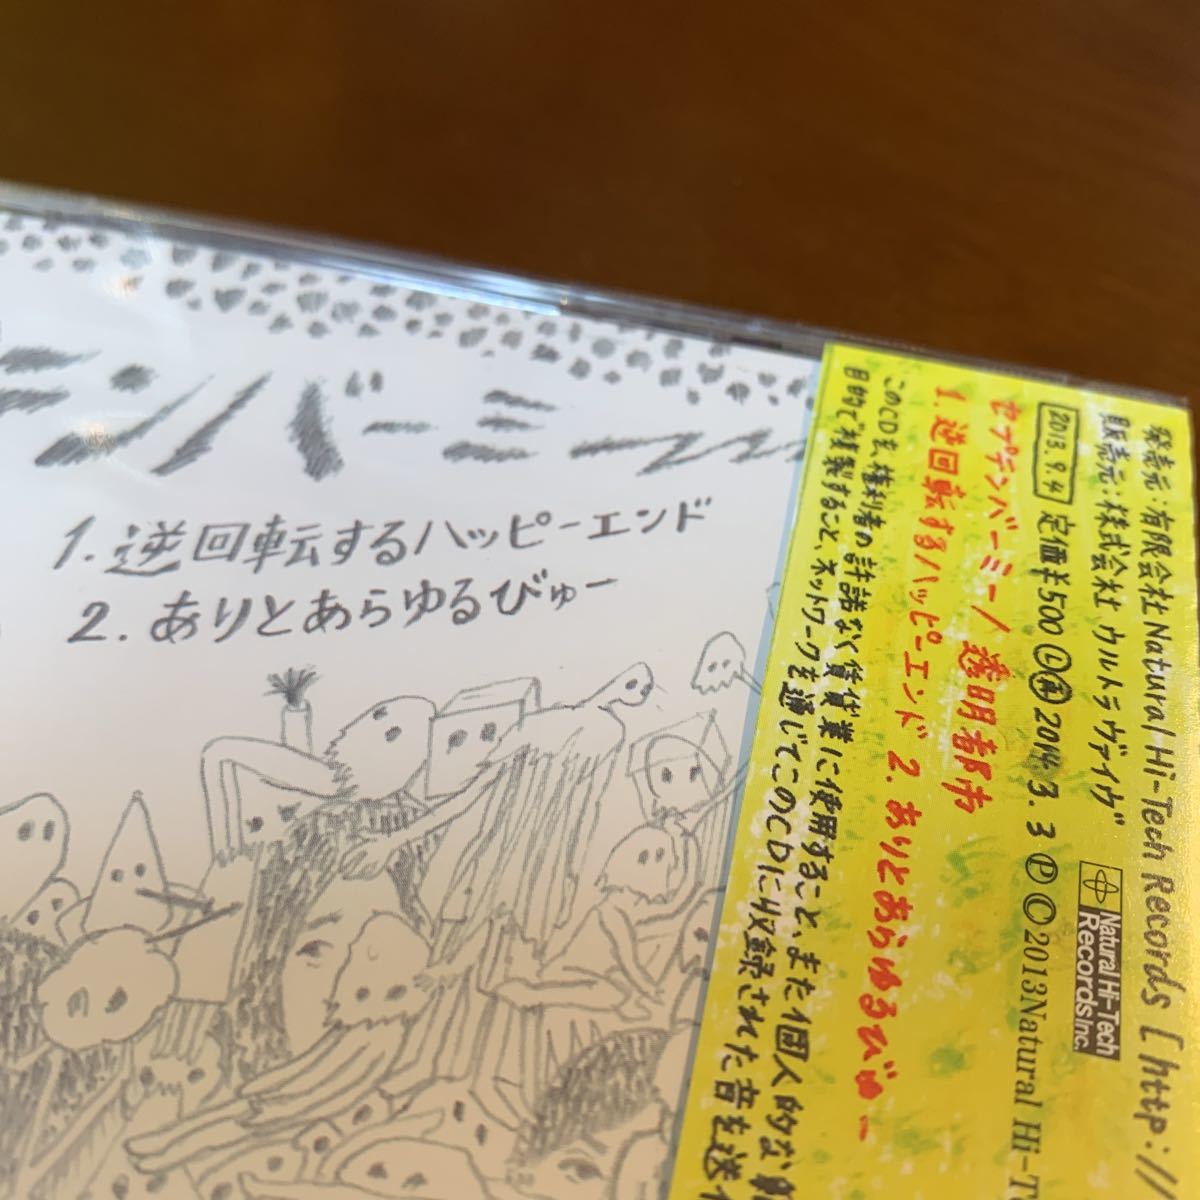 テンバーミー
1. 逆回転するハッピーエンド
2. ありとあらゆるびゅー
発売元:有限会社Natural Hi-Tech Records [http://
販売元:株式会社 ウルトラヴァイヴ
Natural Hi-Tech
Records Inc.
2013.9.4 定価¥500 Ⓛ 2014.3.3 ⓅⒸ2013Natural Hi-T
セプテンバーミー/透明都市
1. 逆回転するハッピーエンド 2. ありとあらゆるびゅー
このCDを、権利者の許諾なく賃貸業に使用すること、また個人的な
目的で複製すること、ネットワークを通じてこのCDに収録された音を送